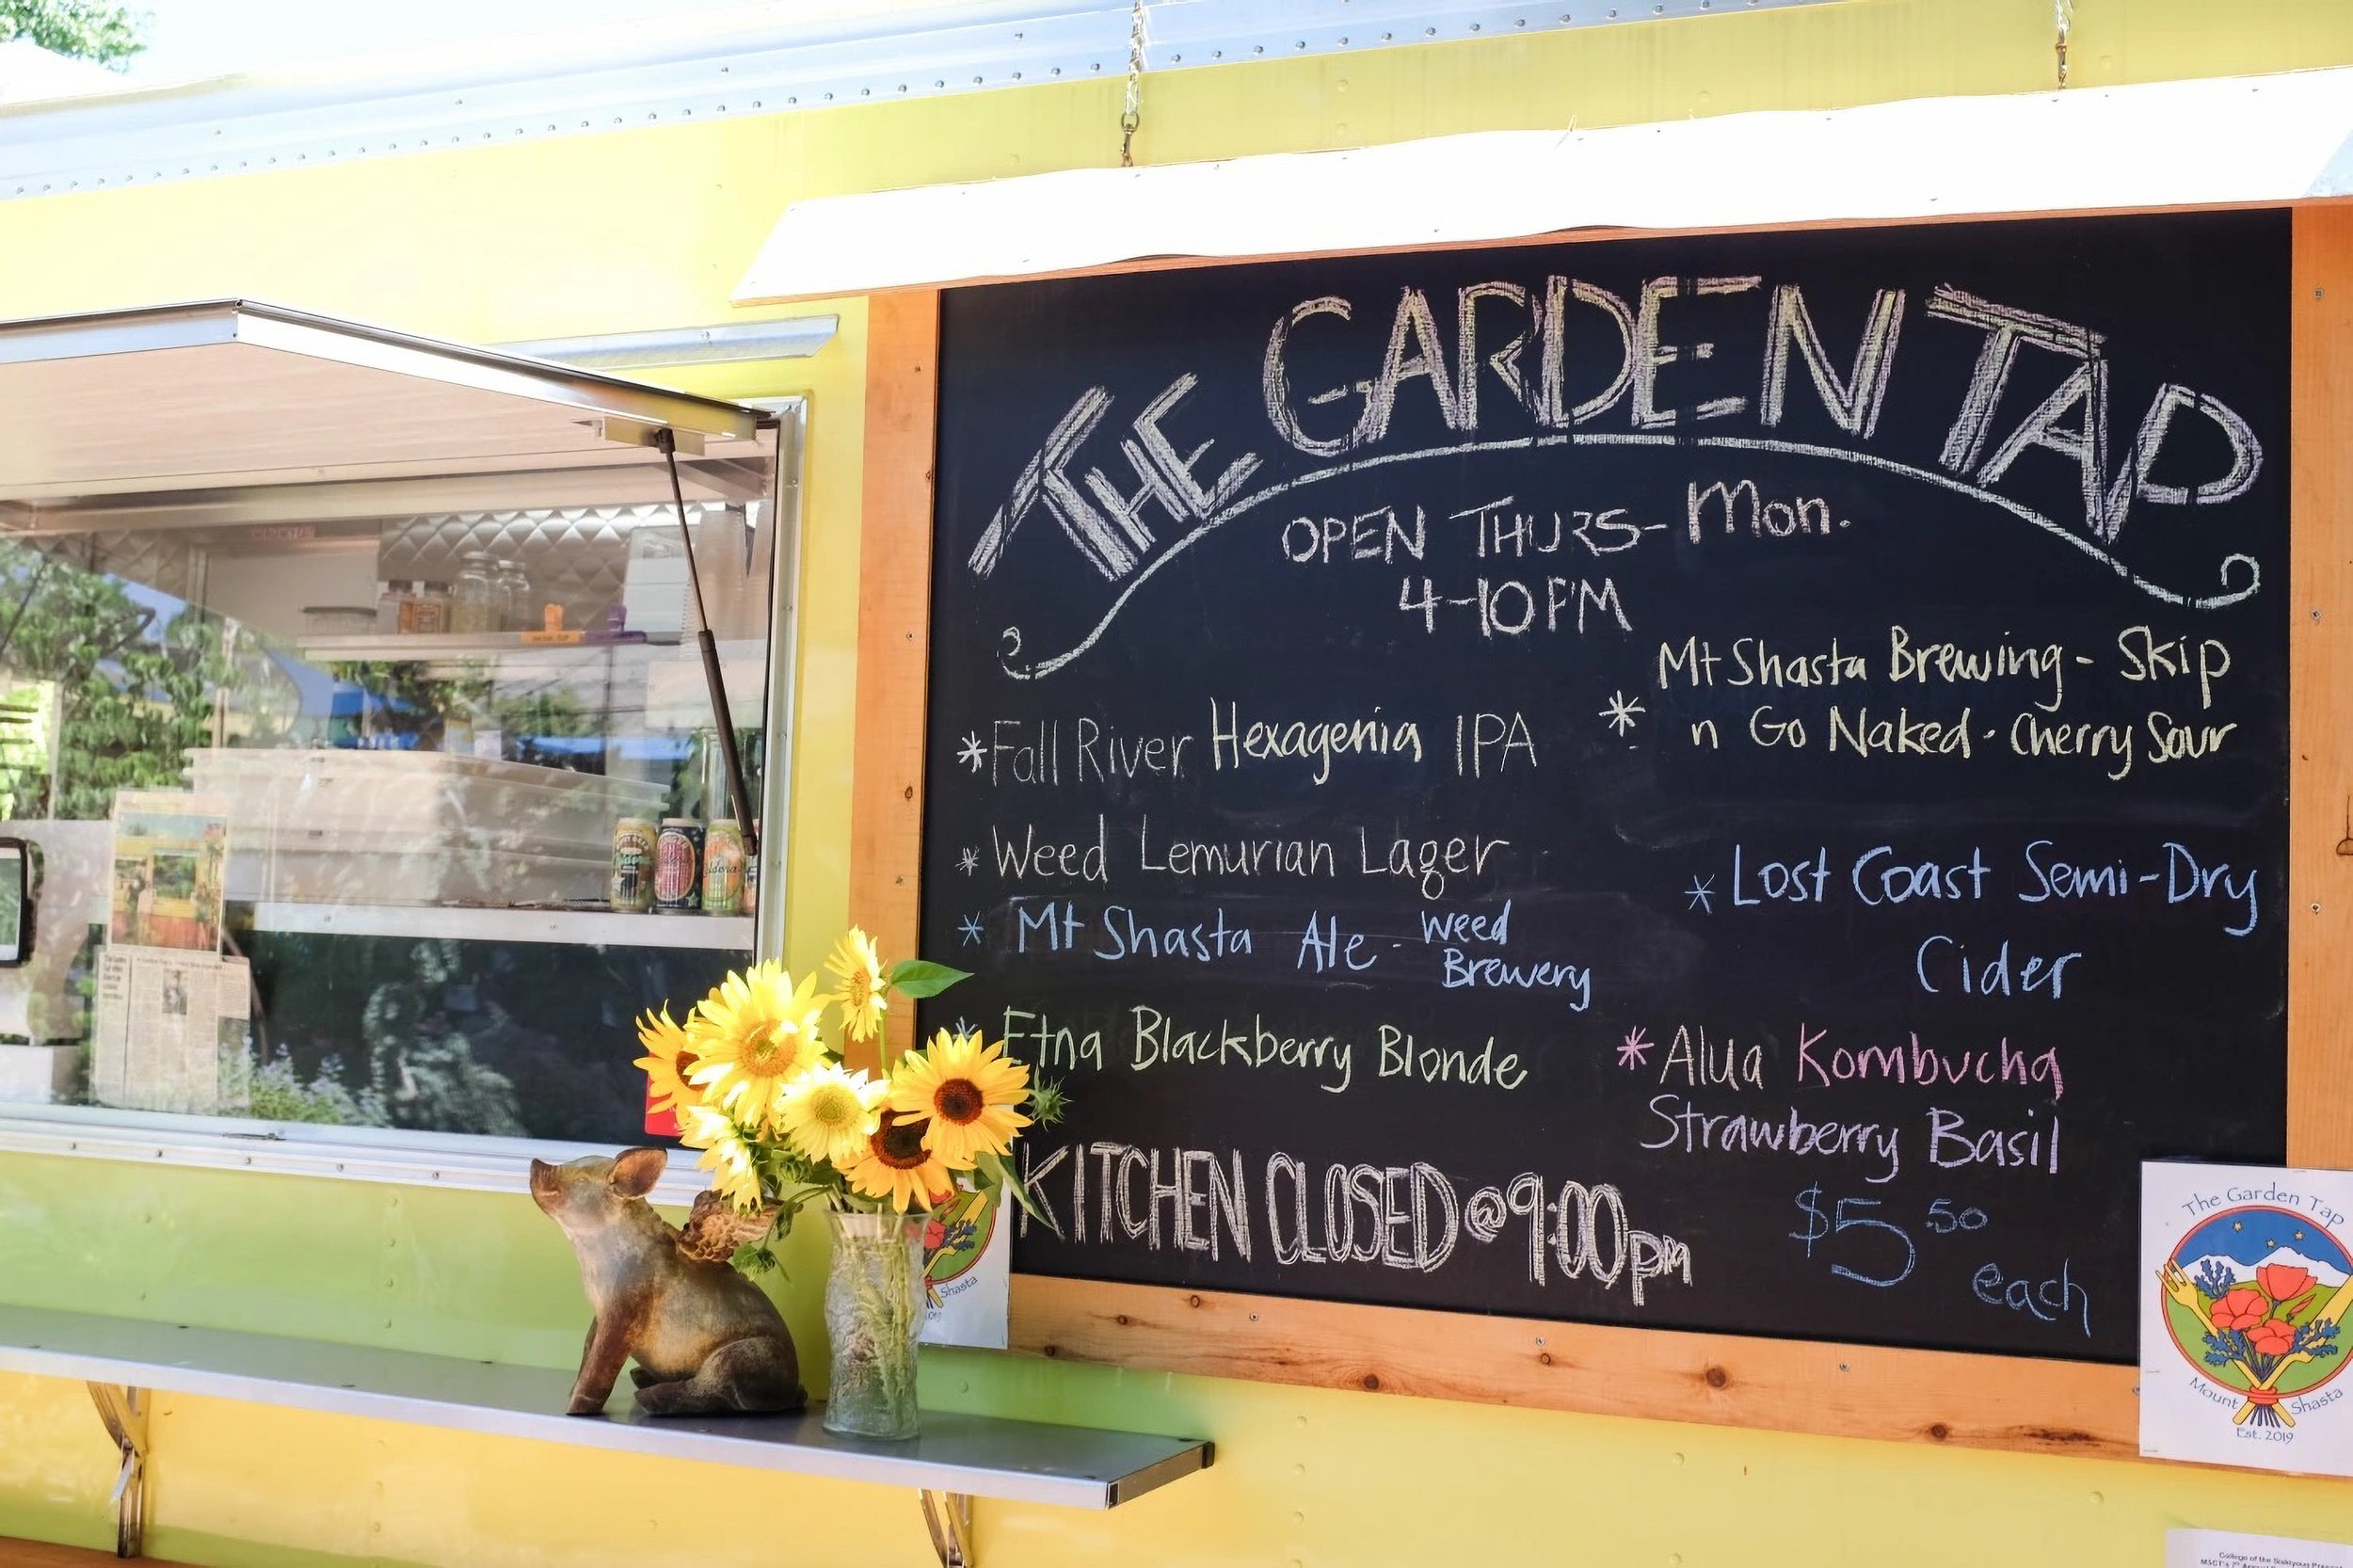 THE GARDEN TAP
OPEN THURS- Mon.
4-10 PM
*Fall River Hexagenia IPA
* Weed Lemurian Lager
* Mt Shasta Ale - Weed
Brewery
* Etna Blackberry Blonde
KITCHEN CLOSED @ 9:00pm
Mt Shasta Brewing - Skip
* n Go Naked - Cherry Sour
* Lost Coast Semi-Dry
Cider
*Alua Kombucha
Strawberry Basil
$5 50
each
Shasta
The Garden Tap
Mount Shasta
Est. 2019
College of the Siskiyous